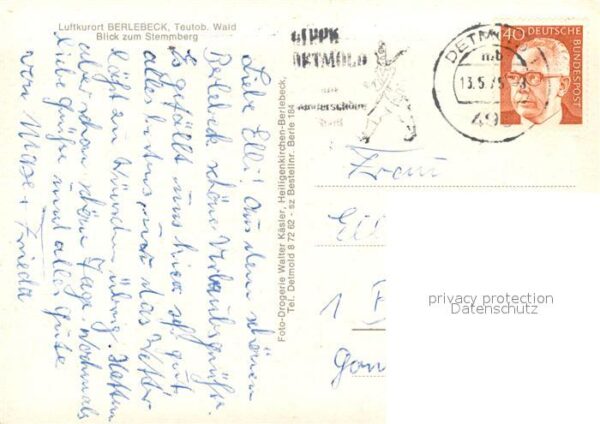 Luftkurort BERLEBECK, Teutob. Wald
Blick zum Stemmberg
Liebe Elli! Aus dem schönen
Berlebeck schöne Urlaubsgrüße.
Es gefällt uns hier sehr gut
alles bestens, nur das Wetter
läßt zu wünschen übrig. Hatten
aber schon schöne Tage. Nochmals
liebe Grüße und alles Gute
von Mieze + Frieda
Foto-Drogerie Walter Käsler, Heiligenkirchen-Berlebeck,
Tel. Detmold 8 72 62 - sz Bestellnr. Berle 184
LIPPE
DETMOLD
wunderschöne
DETM
13.5.75
49
40 DEUTSCHE
BUNDESPOST
Frau
1
privacy protection
Datenschutz